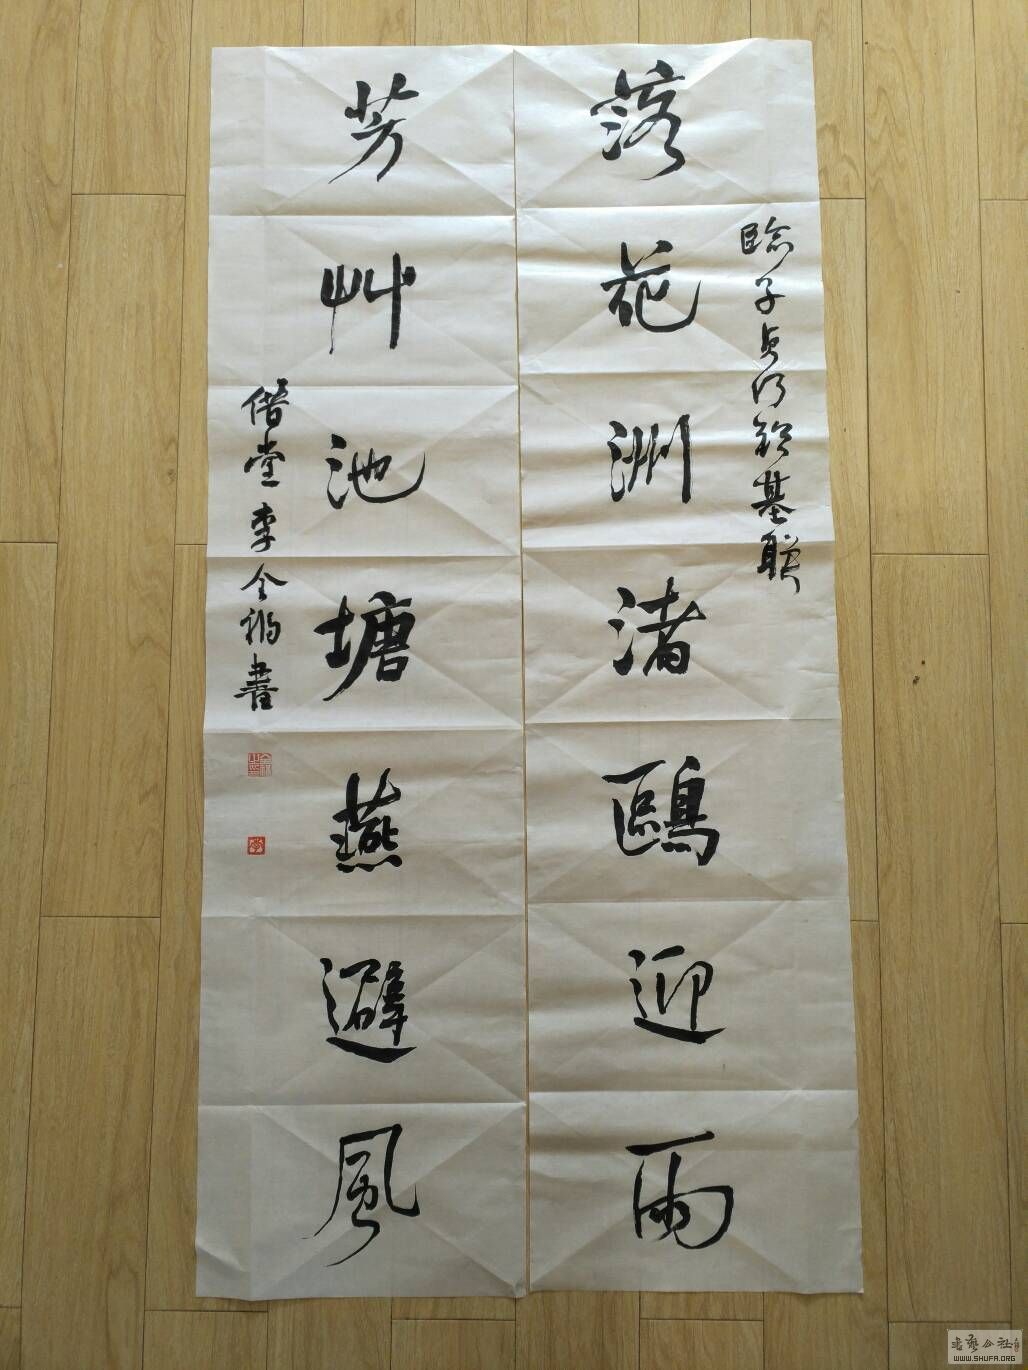 落花洲渚鷗迎雨
臨子貞行於基聯
芳艸池塘燕避風
借堂李全福書
书艺公社
WWW.SHUFA.ORG